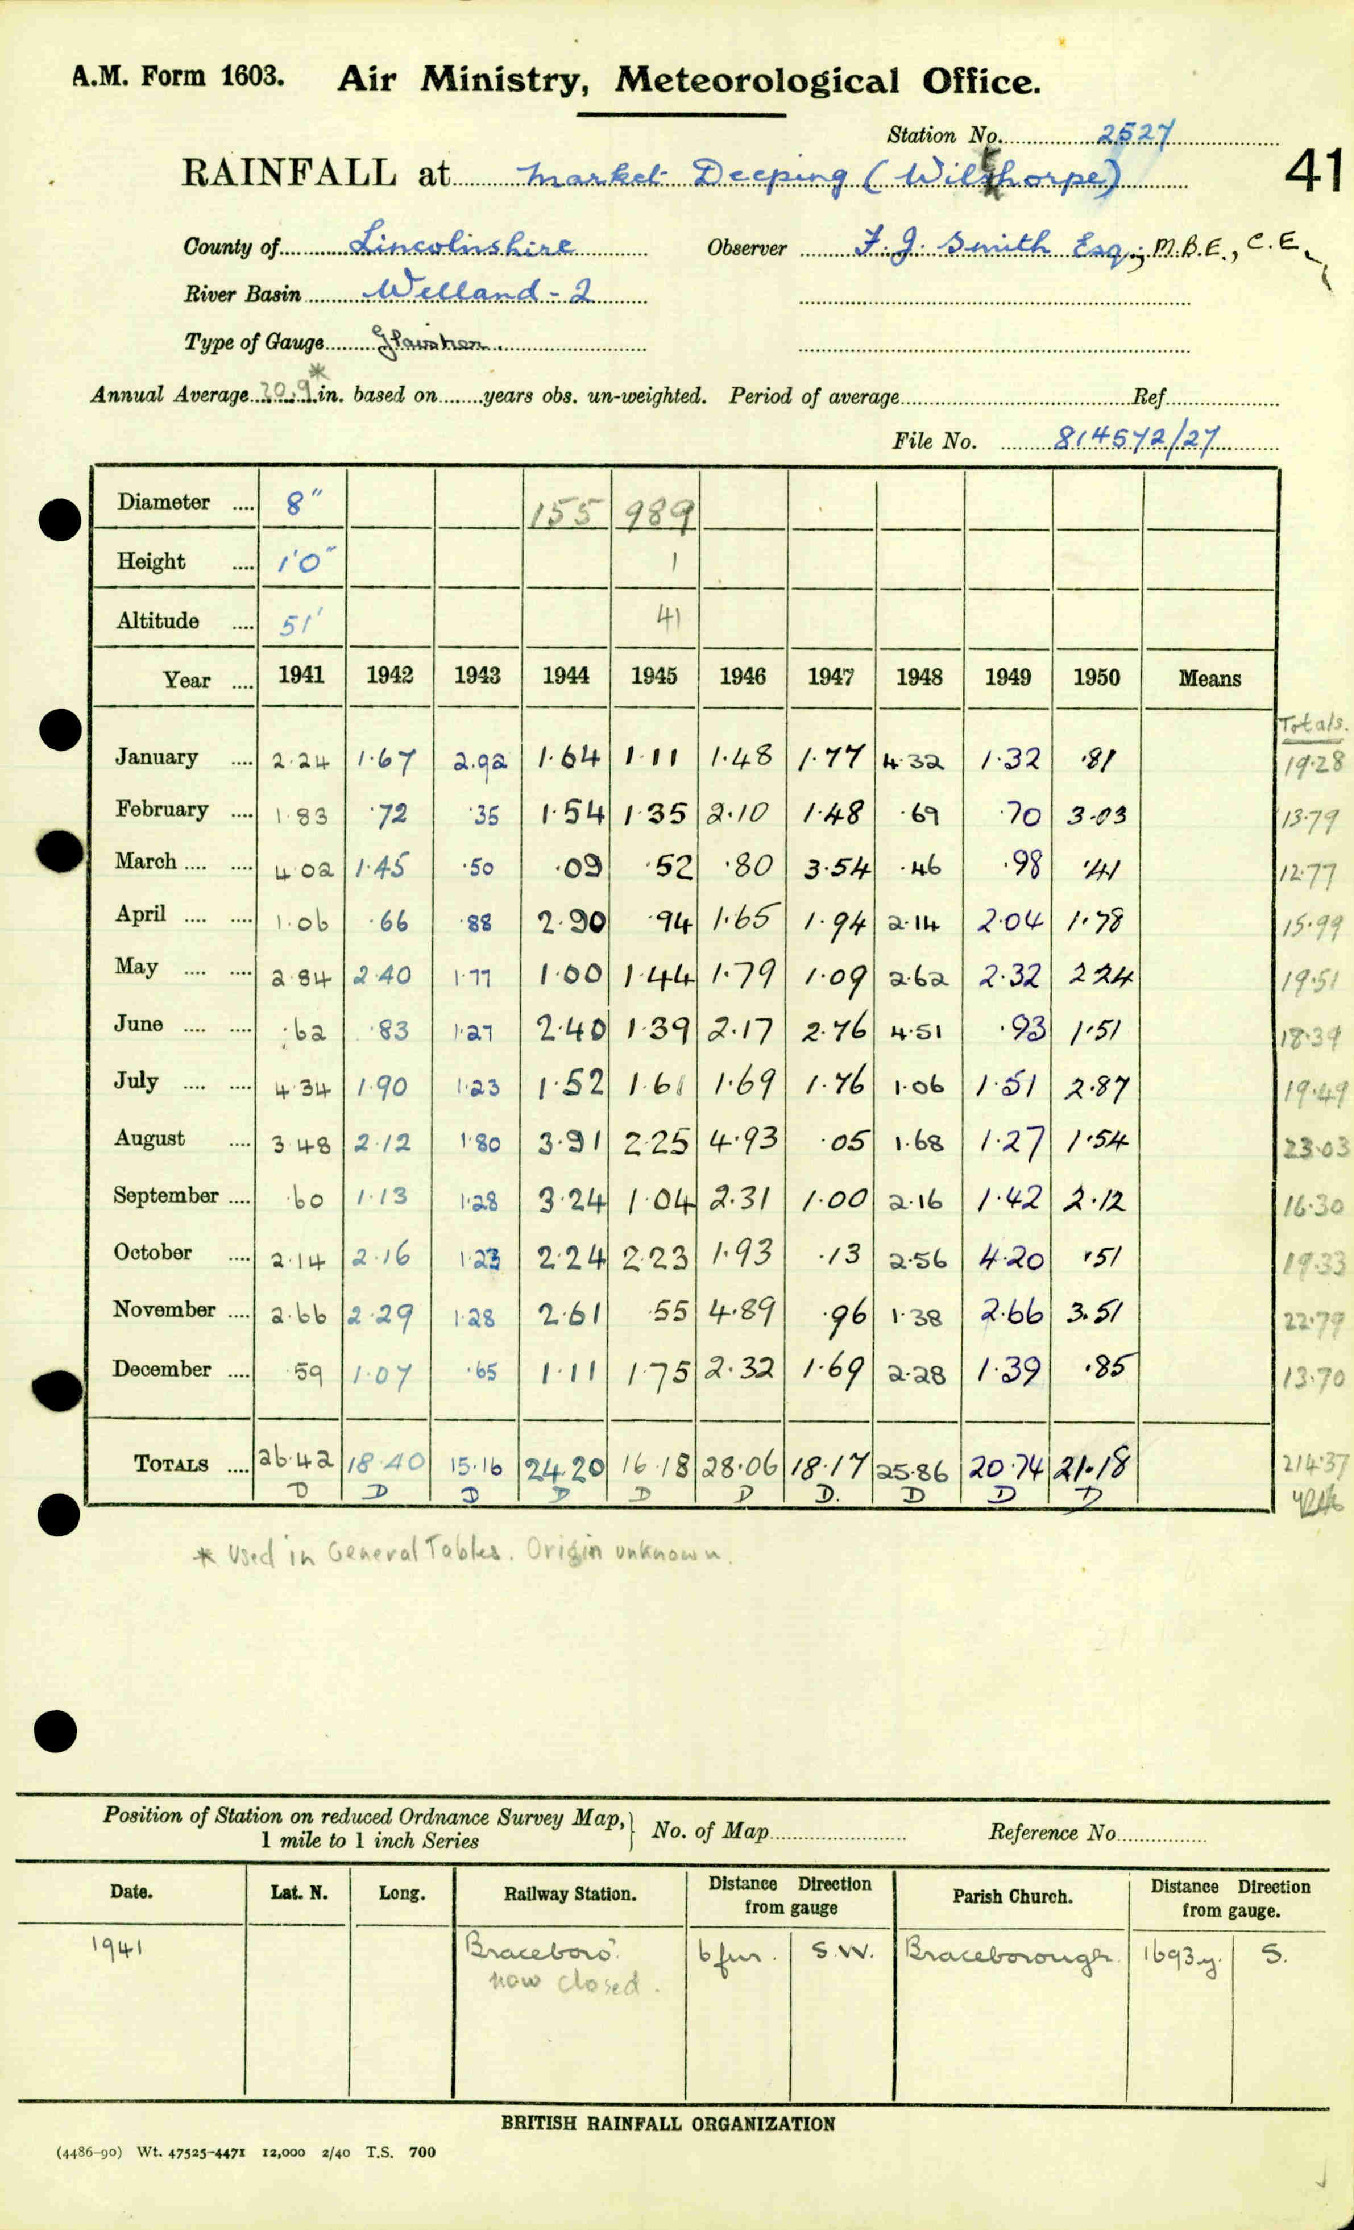 A.M. Form 1603. Air Ministry, Meteorological Office.
Station No. 2527
41
RAINFALL at Market Deeping (Wilsthorpe)
County of Lincolnshire Observer F. J. Smith Esq., M.B.E., C.E.
River Basin Welland - 2
Type of Gauge Glaisher.
Annual Average 20.9* in. based on years obs. un-weighted. Period of average Ref
File No. 814572/27
Diameter .... 8" 155 989
Height .... 1'0" 1
Altitude .... 51' 41
Year .... 1941 1942 1943 1944 1945 1946 1947 1948 1949 1950 Means
Totals.
January .... 2.24 1.67 2.92 1.64 1.11 1.48 1.77 4.32 1.32 .81 19.28
February .... 1.83 .72 .35 1.54 1.35 2.10 1.48 .69 .70 3.03 13.79
March .... .... 4.02 1.45 .50 .09 .52 .80 3.54 .46 .98 .41 12.77
April .... .... 1.06 .66 .88 2.90 .94 1.65 1.94 2.14 2.04 1.78 15.99
May .... .... 2.84 2.40 1.77 1.00 1.44 1.79 1.09 2.62 2.32 2.24 19.51
June .... .... .62 .83 1.27 2.40 1.39 2.17 2.76 4.51 .93 1.51 18.39
July .... .... 4.34 1.90 1.23 1.52 1.61 1.69 1.76 1.06 1.51 2.87 19.49
August .... 3.48 2.12 1.80 3.91 2.25 4.93 .05 1.68 1.27 1.54 23.03
September .... .60 1.13 1.28 3.24 1.04 2.31 1.00 2.16 1.42 2.12 16.30
October .... 2.14 2.16 1.23 2.24 2.23 1.93 .13 2.56 4.20 .51 19.33
November .... 2.66 2.29 1.28 2.61 .55 4.89 .96 1.38 2.66 3.51 22.79
December .... .59 1.07 .65 1.11 1.75 2.32 1.69 2.28 1.39 .85 13.70
TOTALS .... 26.42 18.40 15.16 24.20 16.18 28.06 18.17 25.86 20.74 21.18 214.37
D D D D D D D. D D D
* Used in General Tables. Origin unknown.
Position of Station on reduced Ordnance Survey Map, } No. of Map Reference No.
1 mile to 1 inch Series
Date. Lat. N. Long. Railway Station. Distance Direction from gauge Parish Church. Distance Direction from gauge.
1941 Braceboro'. 6 fur. S.W. Braceborough. 1693y. S.
now closed.
BRITISH RAINFALL ORGANIZATION
(4486-90) Wt. 47525-4471 12,000 2/40 T.S. 700